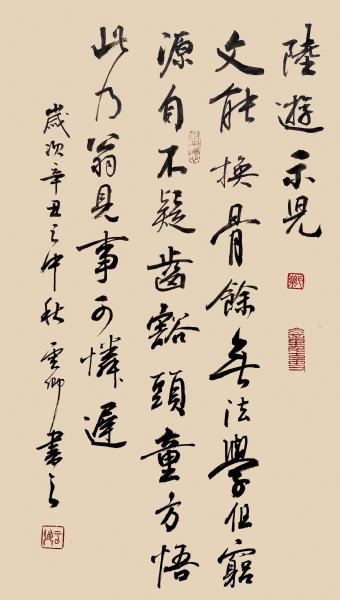 陸游示兒
文能換骨餘無法學但窮
源自不疑齒豁頭童方悟
此乃翁見事可憐遲
歲次辛丑之中秋雲卿書之